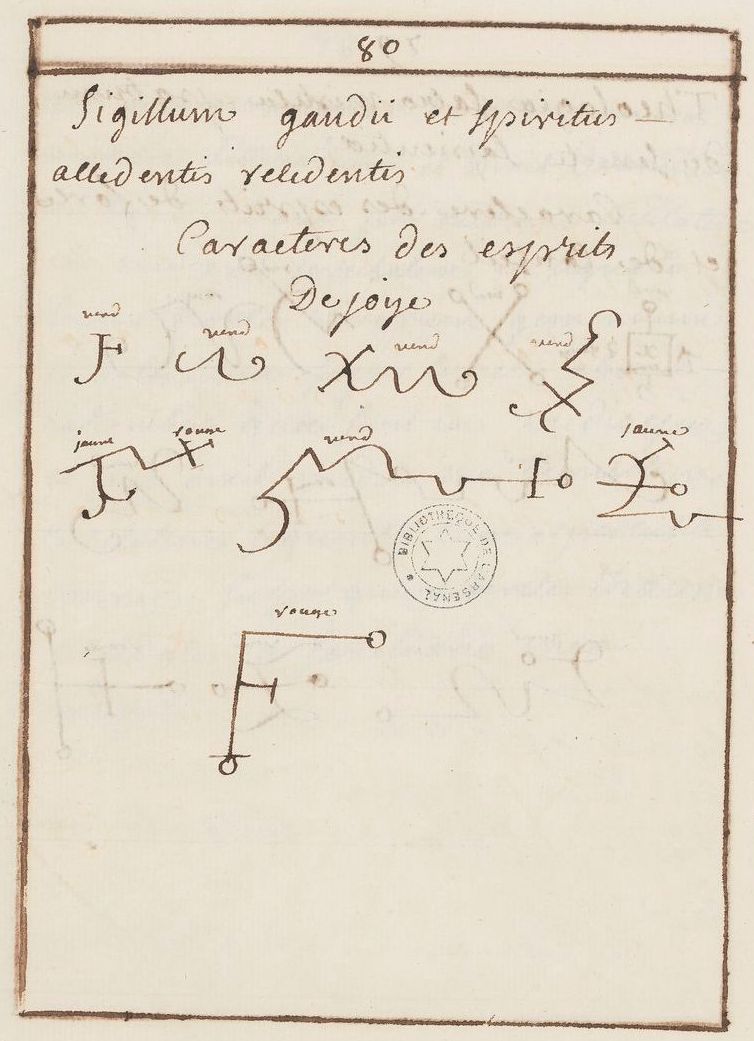 80
Sigillum gaudii et spiritus
alledentis reledentis
Caracteres des esprits
De joye
verd verd verd verd
jaune rouge verd jaune
BIBLIOTHEQUE DE L'ARSENAL
rouge